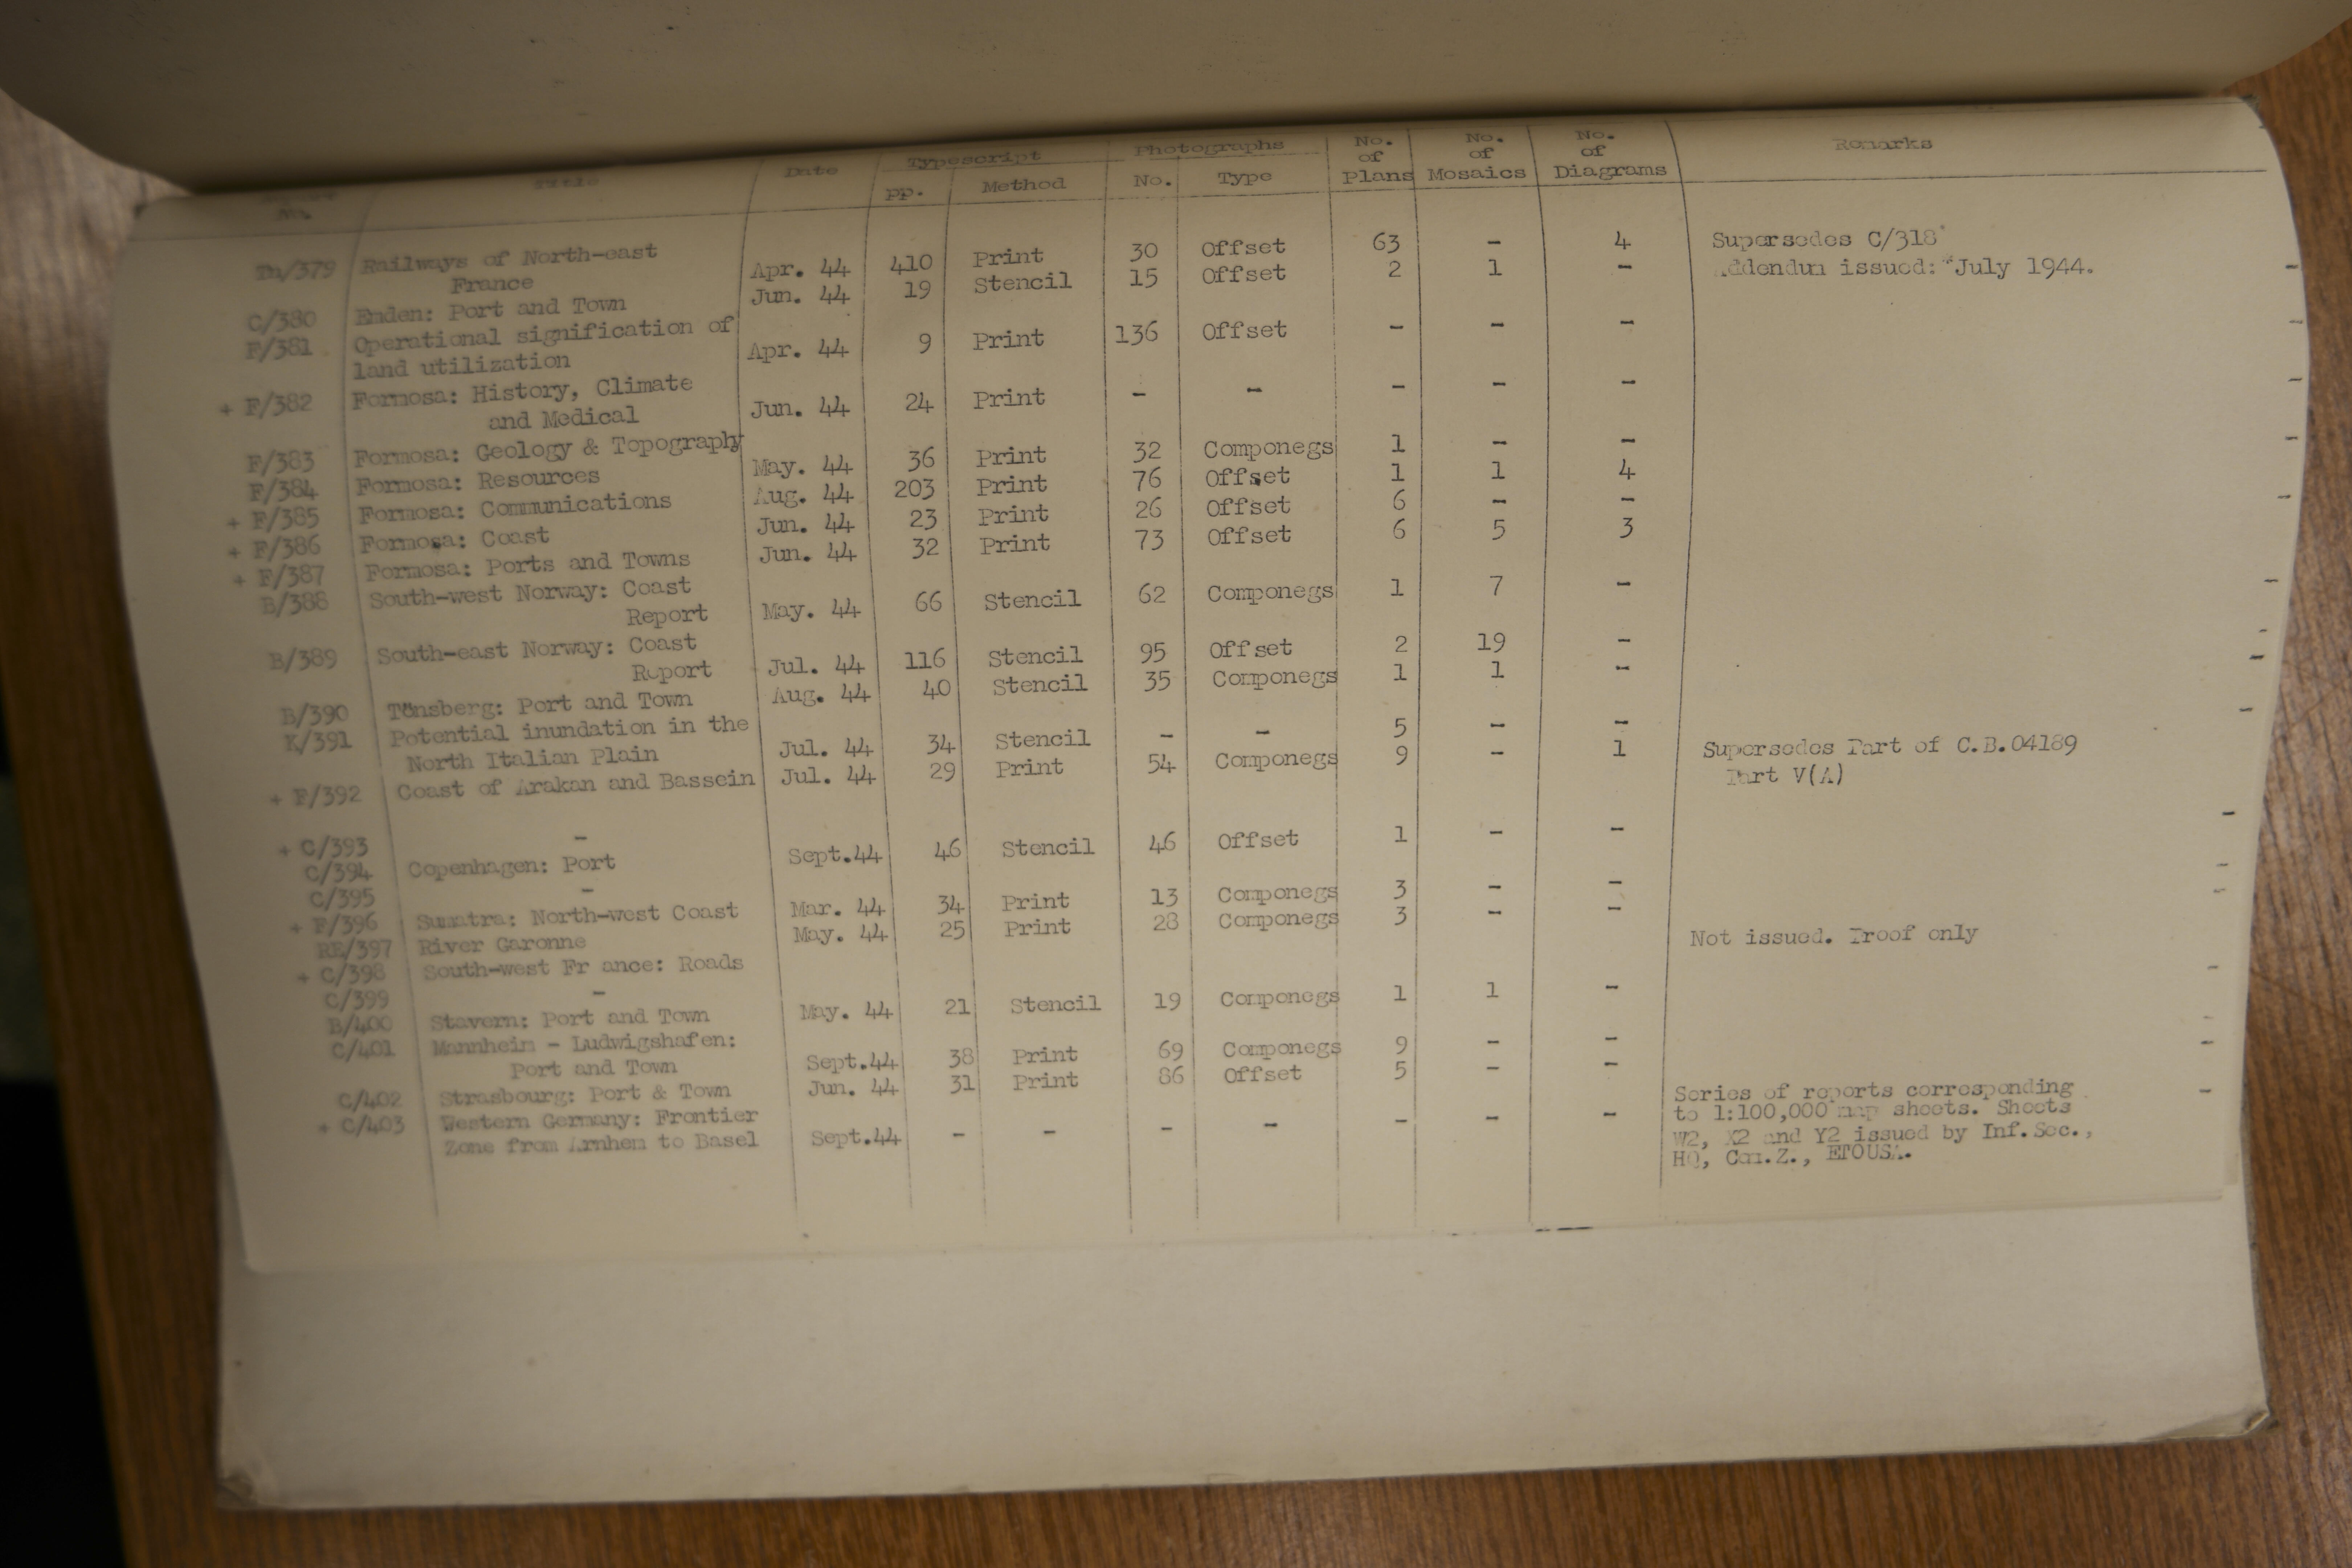 No. Title Date Typescript Photographs No. of Plans No. of Mosaics No. of Diagrams Remarks
pp. Method No. Type
/379 Railways of North-east
France Apr. 44 410 Print 30 Offset 63 - 4 Supersedes C/318
C/380 Emden: Port and Town Jun. 44 19 Stencil 15 Offset 2 1 - Addendum issued: July 1944.
F/381 Operational signification of
land utilization Apr. 44 9 Print 136 Offset - - -
+ F/382 Formosa: History, Climate
and Medical Jun. 44 24 Print - - - - -
F/383 Formosa: Geology & Topography May. 44 36 Print 32 Componegs 1 - -
F/384 Formosa: Resources Aug. 44 203 Print 76 Offset 1 1 4
+ F/385 Formosa: Communications Jun. 44 23 Print 26 Offset 6 - -
+ F/386 Formosa: Coast Jun. 44 32 Print 73 Offset 6 5 3
+ F/387 Formosa: Ports and Towns
B/388 South-west Norway: Coast
Report May. 44 66 Stencil 62 Componegs 1 7 -
B/389 South-east Norway: Coast
Report Jul. 44 116 Stencil 95 Offset 2 19 -
B/390 Tönsberg: Port and Town Aug. 44 40 Stencil 35 Componegs 1 1 -
K/391 Potential inundation in the
North Italian Plain Jul. 44 34 Stencil - - 5 - -
+ F/392 Coast of Arakan and Bassein Jul. 44 29 Print 54 Componegs 9 - 1 Supersedes Part of C.B.04189
Part V(A)
+ C/393 -
C/394 Copenhagen: Port Sept.44 46 Stencil 46 Offset 1 - -
C/395 -
+ F/396 Sumatra: North-west Coast Mar. 44 34 Print 13 Componegs 3 - -
RE/397 River Garonne May. 44 25 Print 28 Componegs 3 - -
+ C/398 South-west Fr ance: Roads Not issued. Proof only
C/399 -
B/400 Stavern: Port and Town May. 44 21 Stencil 19 Componegs 1 1 -
C/401 Mannheim - Ludwigshafen:
Port and Town Sept.44 38 Print 69 Componegs 9 - -
C/402 Strasbourg: Port & Town Jun. 44 31 Print 86 Offset 5 - -
+ C/403 Western Germany: Frontier
Zone from Arnhem to Basel Sept.44 - - - - - - - Series of reports corresponding
to 1:100,000 map sheets. Sheets
W2, X2 and Y2 issued by Inf.Sec.,
HQ, Com.Z., ETOUSA.